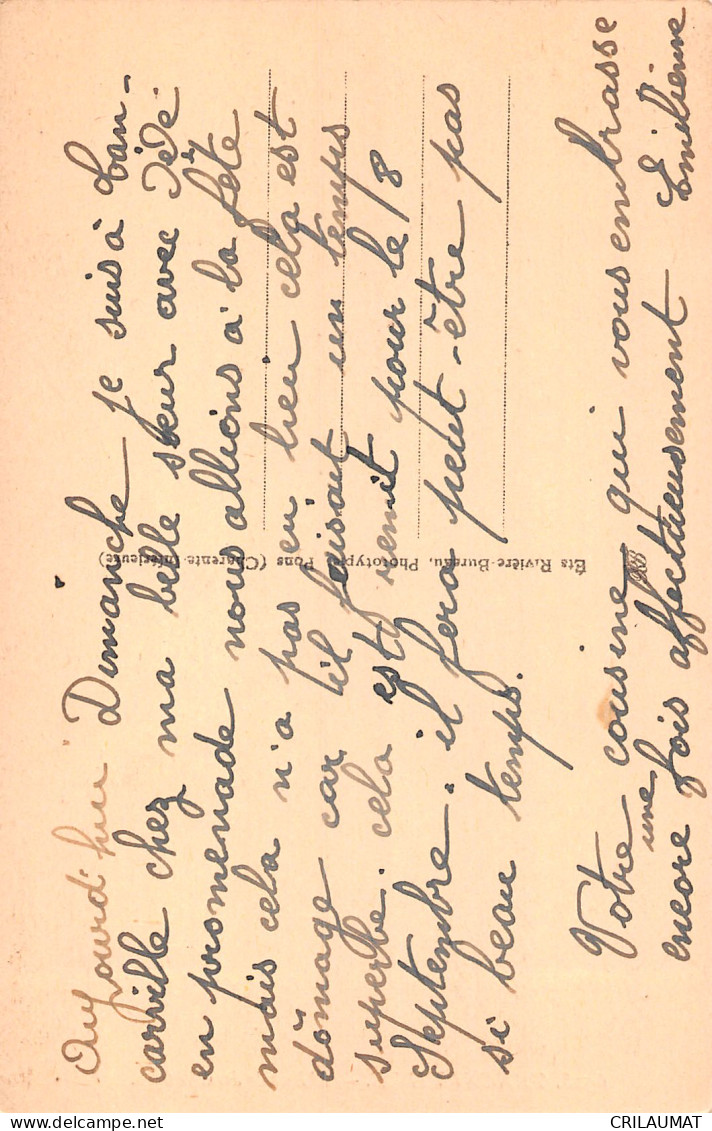 Aujourd'hui Dimanche je suis à Can-
carville chez ma belle sœur avec Dédé
en promenade nous allions à la fête
mais cela n'a pas eu lieu cela est
dômage car il faisait un temps
superbe. cela est remit pour le 18
Septembre. il fera peut-être pas
si beau temps.
Votre cousine qui vous embrasse
une
encore fois affectueusement
Emilienne
Éts Rivière-Bureau, Phototypie, Pons (Charente-Inférieure)
RB
CRILAUMAT